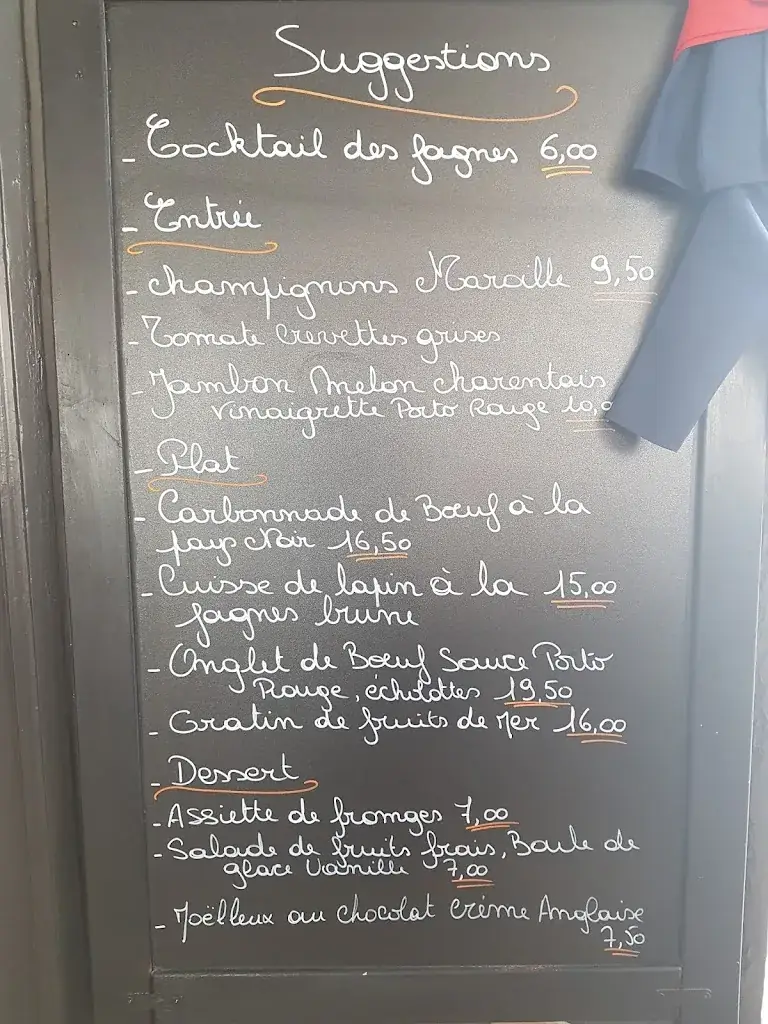 Suggestions
- Cocktail des fagnes 6,00
- Entrée
- champignons Maroille 9,50
- Tomate crevettes grises
- Jambon Melon charentais
vinaigrette Porto Rouge 10,0
- Plat
- Carbonnade de Bœuf à la
pays Noir 16,50
- Cuisse de lapin à la 15,00
fagnes brune
- Onglet de Bœuf Sauce Porto
Rouge, échalottes 19,50
- Gratin de fruits de Mer 16,00
- Dessert
- Assiette de fromges 7,00
- Salade de fruits frais, Boule de
glace Vanille 7,00
- Moëlleux au chocolat crème Anglaise
7,50